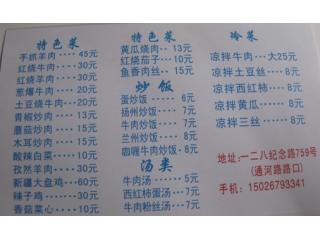 特色菜
手抓羊肉····45元
红烧牛肉····30元
红烧羊肉····30元
葱爆牛肉····20元
土豆烧牛肉··20元
青椒炒肉····13元
蘑菇炒肉····15元
木耳炒肉····15元
酸辣白菜····10元
孜然羊肉····30元
新疆大盘鸡··60元
辣子鸡······30元
香菇菜心····10元
特色菜
黄瓜烧肉··13元
红烧茄子··10元
鱼香肉丝··15元
炒饭
蛋炒饭·····6元
扬州炒饭···7元
牛肉炒饭···7元
兰州炒饭···8元
咖喱牛肉炒饭·8元
汤类
牛肉汤····5元
西红柿蛋汤··7元
牛肉粉丝汤··7元
冷菜
凉拌牛肉··大25元
凉拌土豆丝··8元
凉拌西红柿··8元
凉拌黄瓜···8元
凉拌三丝···8元
地址:一二八纪念路759号
(通河路路口)
手机:15026793341